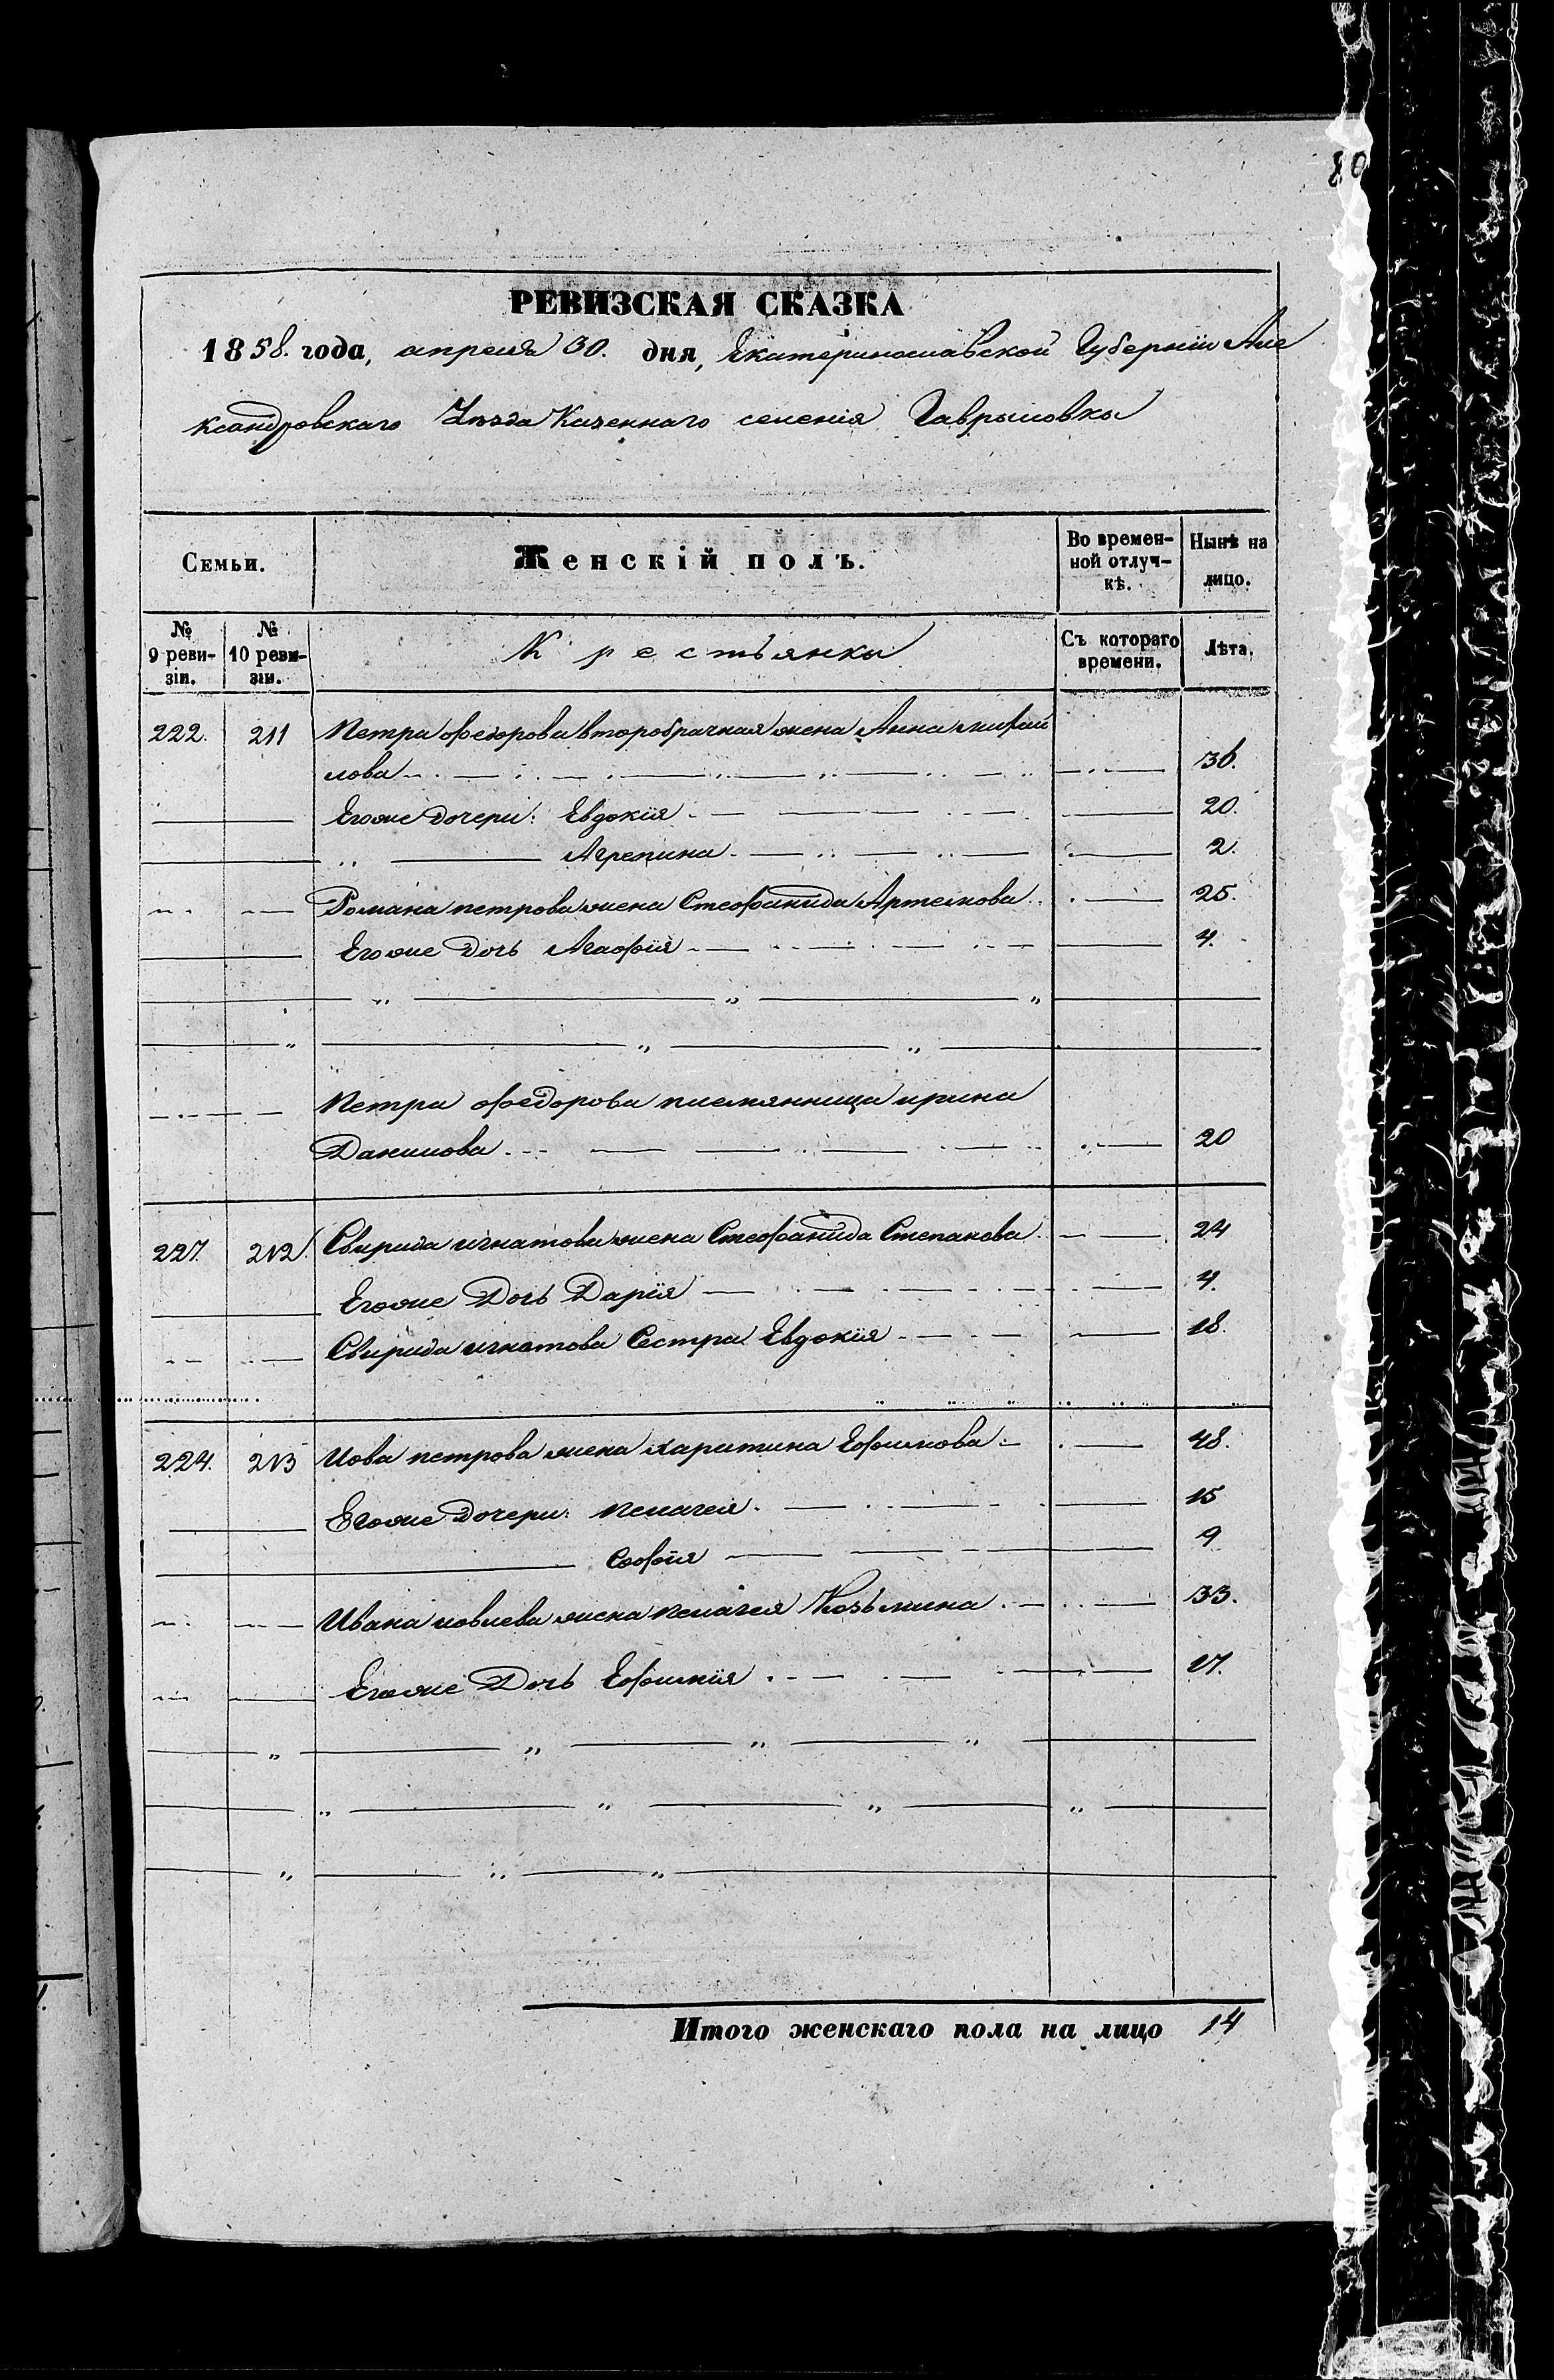 80
РЕВИЗСКАЯ СКАЗКА
1858. года, апреля 30. дня, Екатеринославской Губерніи Але
ксандровскаго Уѣзда Казеннаго селенія Гаврыловки
Семьи. Женскій полъ. Во времен- Нынѣ на
ной отлуч- лицо.
кѣ.
№ № Крестьянки Съ котораго Лѣта.
9 реви- 10 реви- времени.
зіи. зіи.
222. 211 Петра Федорова второбрачная жена Анна михай
лова 36.
Егоже дочери: Евдокія 20.
Агрепина 2.
Романа петрова жена Стефанида Артемова 25.
Егоже Дочь Агафія 4.
Петра Федорова племянница ирина
Данилова 20
227. 212. Свирида игнатова жена Стефанида Степанова 24
Егоже Дочь Дарія 4.
Свирида игнатова Сестра Евдокія 18.
224. 213 Иова петрова жена харитина Ефимова 48.
Егоже Дочери: пелагея 15
Софія 9
Ивана иовлева жена пелагея Козьмина 33.
Егоже Дочь Ефимія 17.
Итого женскаго пола на лицо 14